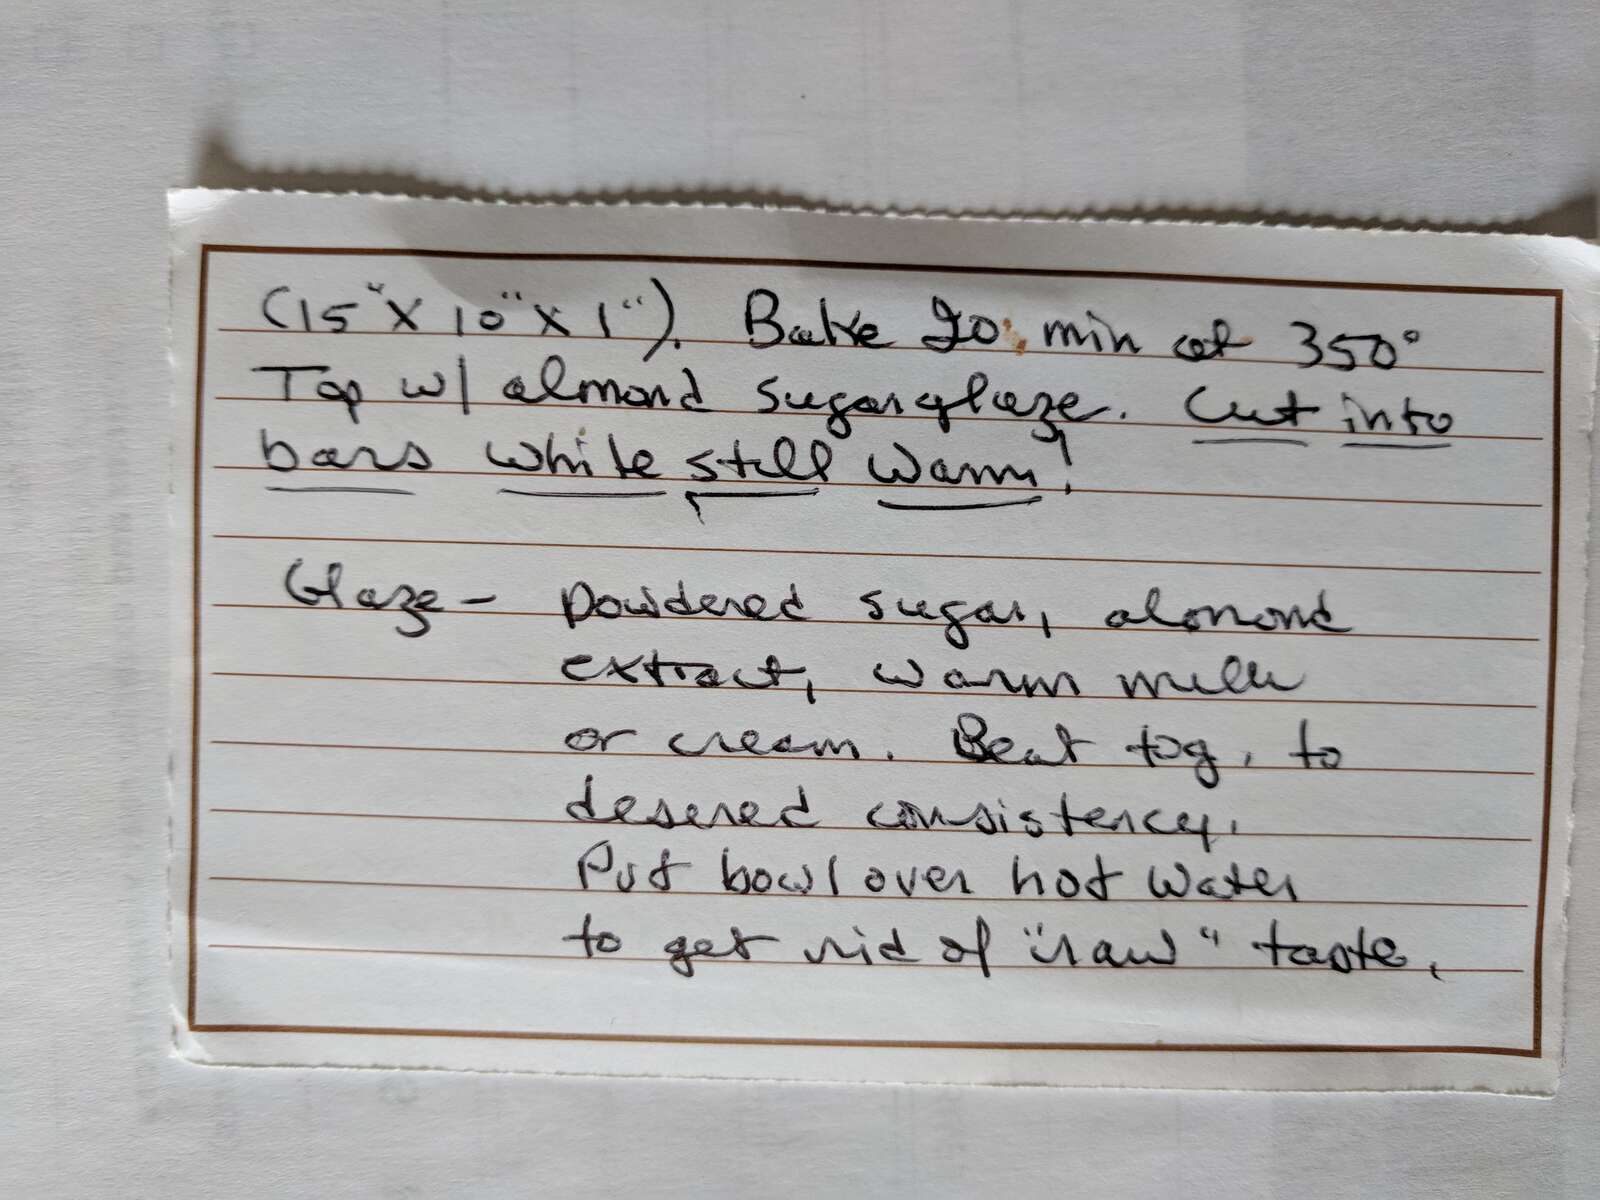 (15" X 10" X 1"). Bake 20 min at 350°
Top w/ almond sugar glaze. Cut into
bars while still warm!
Glaze - powdered sugar, almond
extract, warm milk
or cream. Beat tog. to
desered consistency.
Put bowl over hot water
to get rid of "raw" taste.